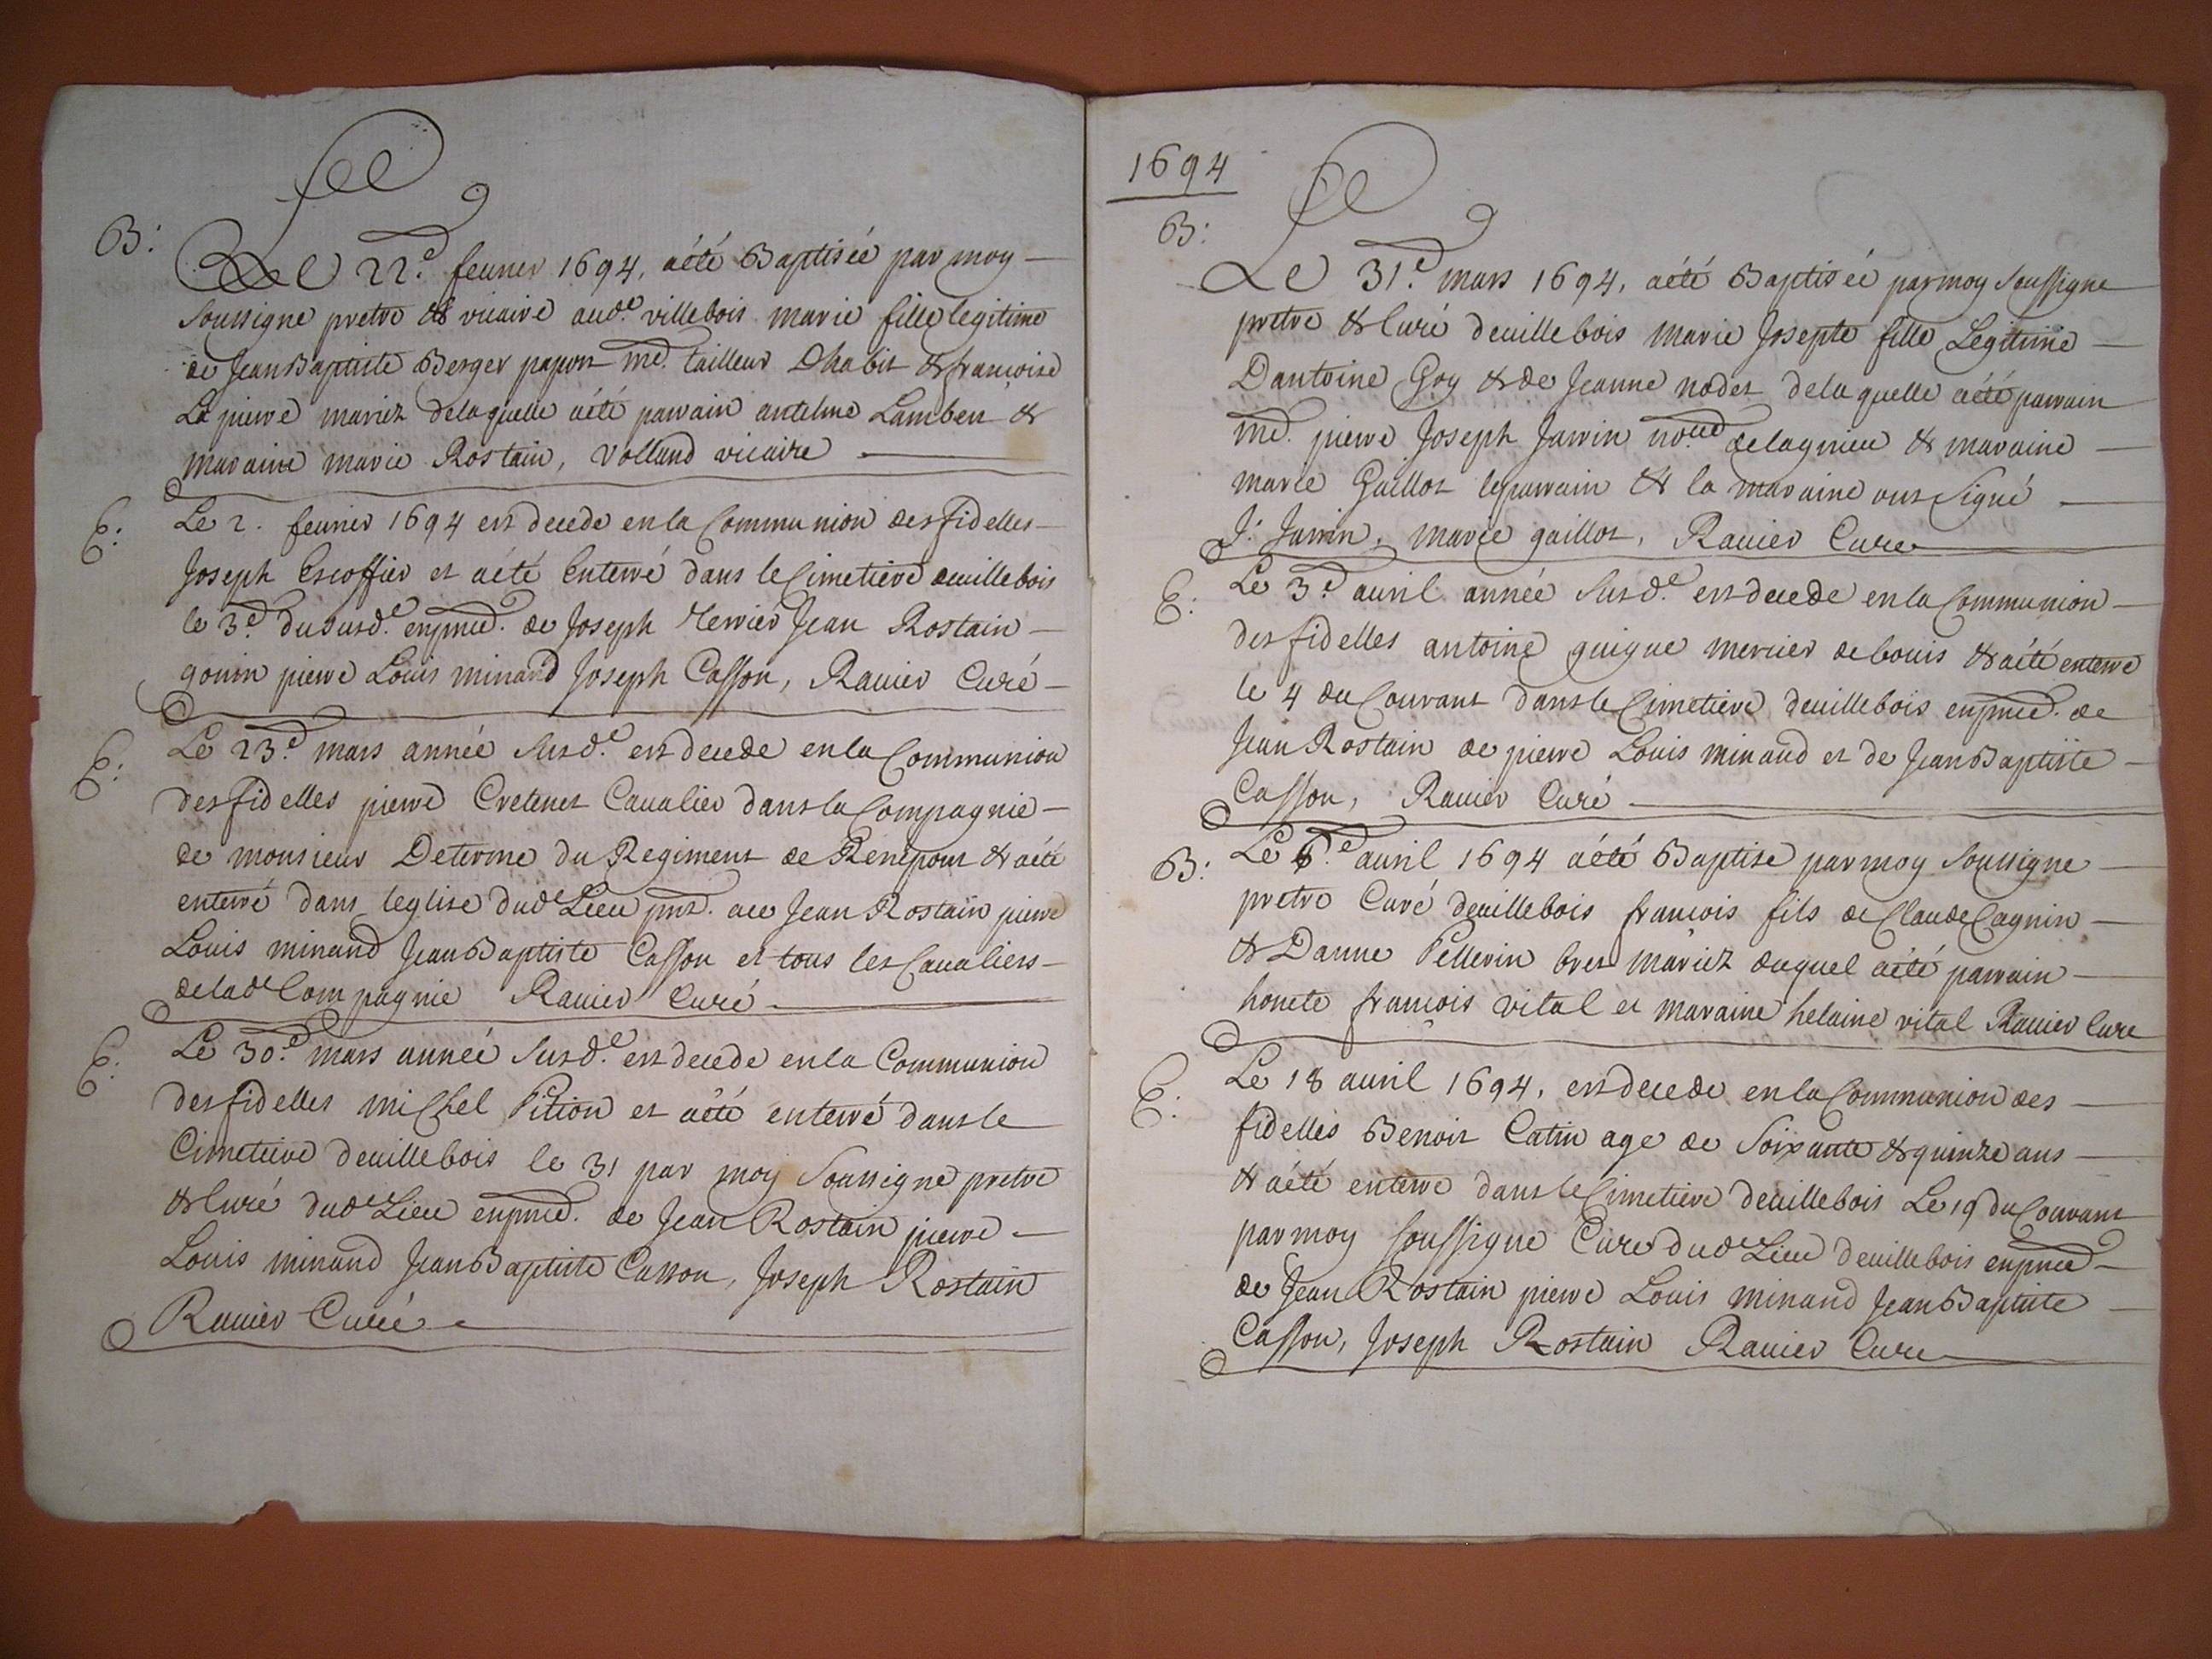 B:
Le 22e feurier 1694, aété Baptiséé par moy
soussigne pretre & vicaire aude villebois marie fille legitime
de Jean Baptiste Berger papon md. tailleur Dhabit & francoise
La pierre mariez delaquelle aété parrain antelme Lambert &
maraine marie Rostain, Volland vicaire
E:
Le 2. feurier 1694 est decede en la Communion des fidelles
Joseph Escoffier et aété Enterré dans le Cimetiere deuillebois
le 3e du susde enpnce. de Joseph Jean Rostain
gonin pierre Louis minand Joseph Casson, Rauier Curé
E:
Le 23e mars année susde est decede en la Communion
des fidelles pierre Cretenet Caualier dans la Compagnie
de monsieur Determe du Regiment de Renepont & aété
enterré dans leglise dude Lieu pnt. ace Jean Rostain pierre
Louis minand Jean Baptiste Casson et tous les Caualiers
delade Compagnie Rauier Curé
E:
Le 30e mars année susde est decede en la Communion
des fidelles michel Pition et aété enterré dans le
Cimetiere deuillebois le 31 par moy soussigne pretre
& Curé dude Lieu enpnce. de Jean Rostain pierre
Louis minand Jean Baptiste Casson, Joseph Rostain
Rauier Curé
1694
B:
Le 31e mars 1694, aété Baptiséé par moy soussigne
pretre & Curé deuillebois marie Josepte fille Legitime
Dantoine Goy & de Jeanne nodet delaquelle aété parrain
md. pierre Joseph Jarrin nore delagnieu & maraine
marie Gaillot le parrain & la maraine ont signé
J. Jarrin, marie gaillot, Rauier Cure
E:
Le 3e auril année susde est decede en la Communion
des fidelles antoine guigue mercier de bouis & aété enterre
le 4 du Courant dans le Cimetiere deuillebois enpnce. de
Jean Rostain de pierre Louis minand et de Jean Baptiste
Casson, Rauier Curé
B:
Le 6e auril 1694 aété Baptise par moy soussigne
pretre Curé deuillebois francois fils de Claude Cagnin
& Danne Pellerin mariez duquel aété parrain
honete francois vital et maraine helaine vital Rauier Cure
E:
Le 18 auril 1694, est decede en la Communion des
fidelles Benoit Catin age de soixante & quinze ans
& aété enterre dans le Cimetiere deuillebois Le 19 du Courant
par moy soussigne Cure dude Lieu deuillebois enpnce
de Jean Rostain pierre Louis minand Jean Baptiste
Casson, Joseph Rostain Rauier Cure